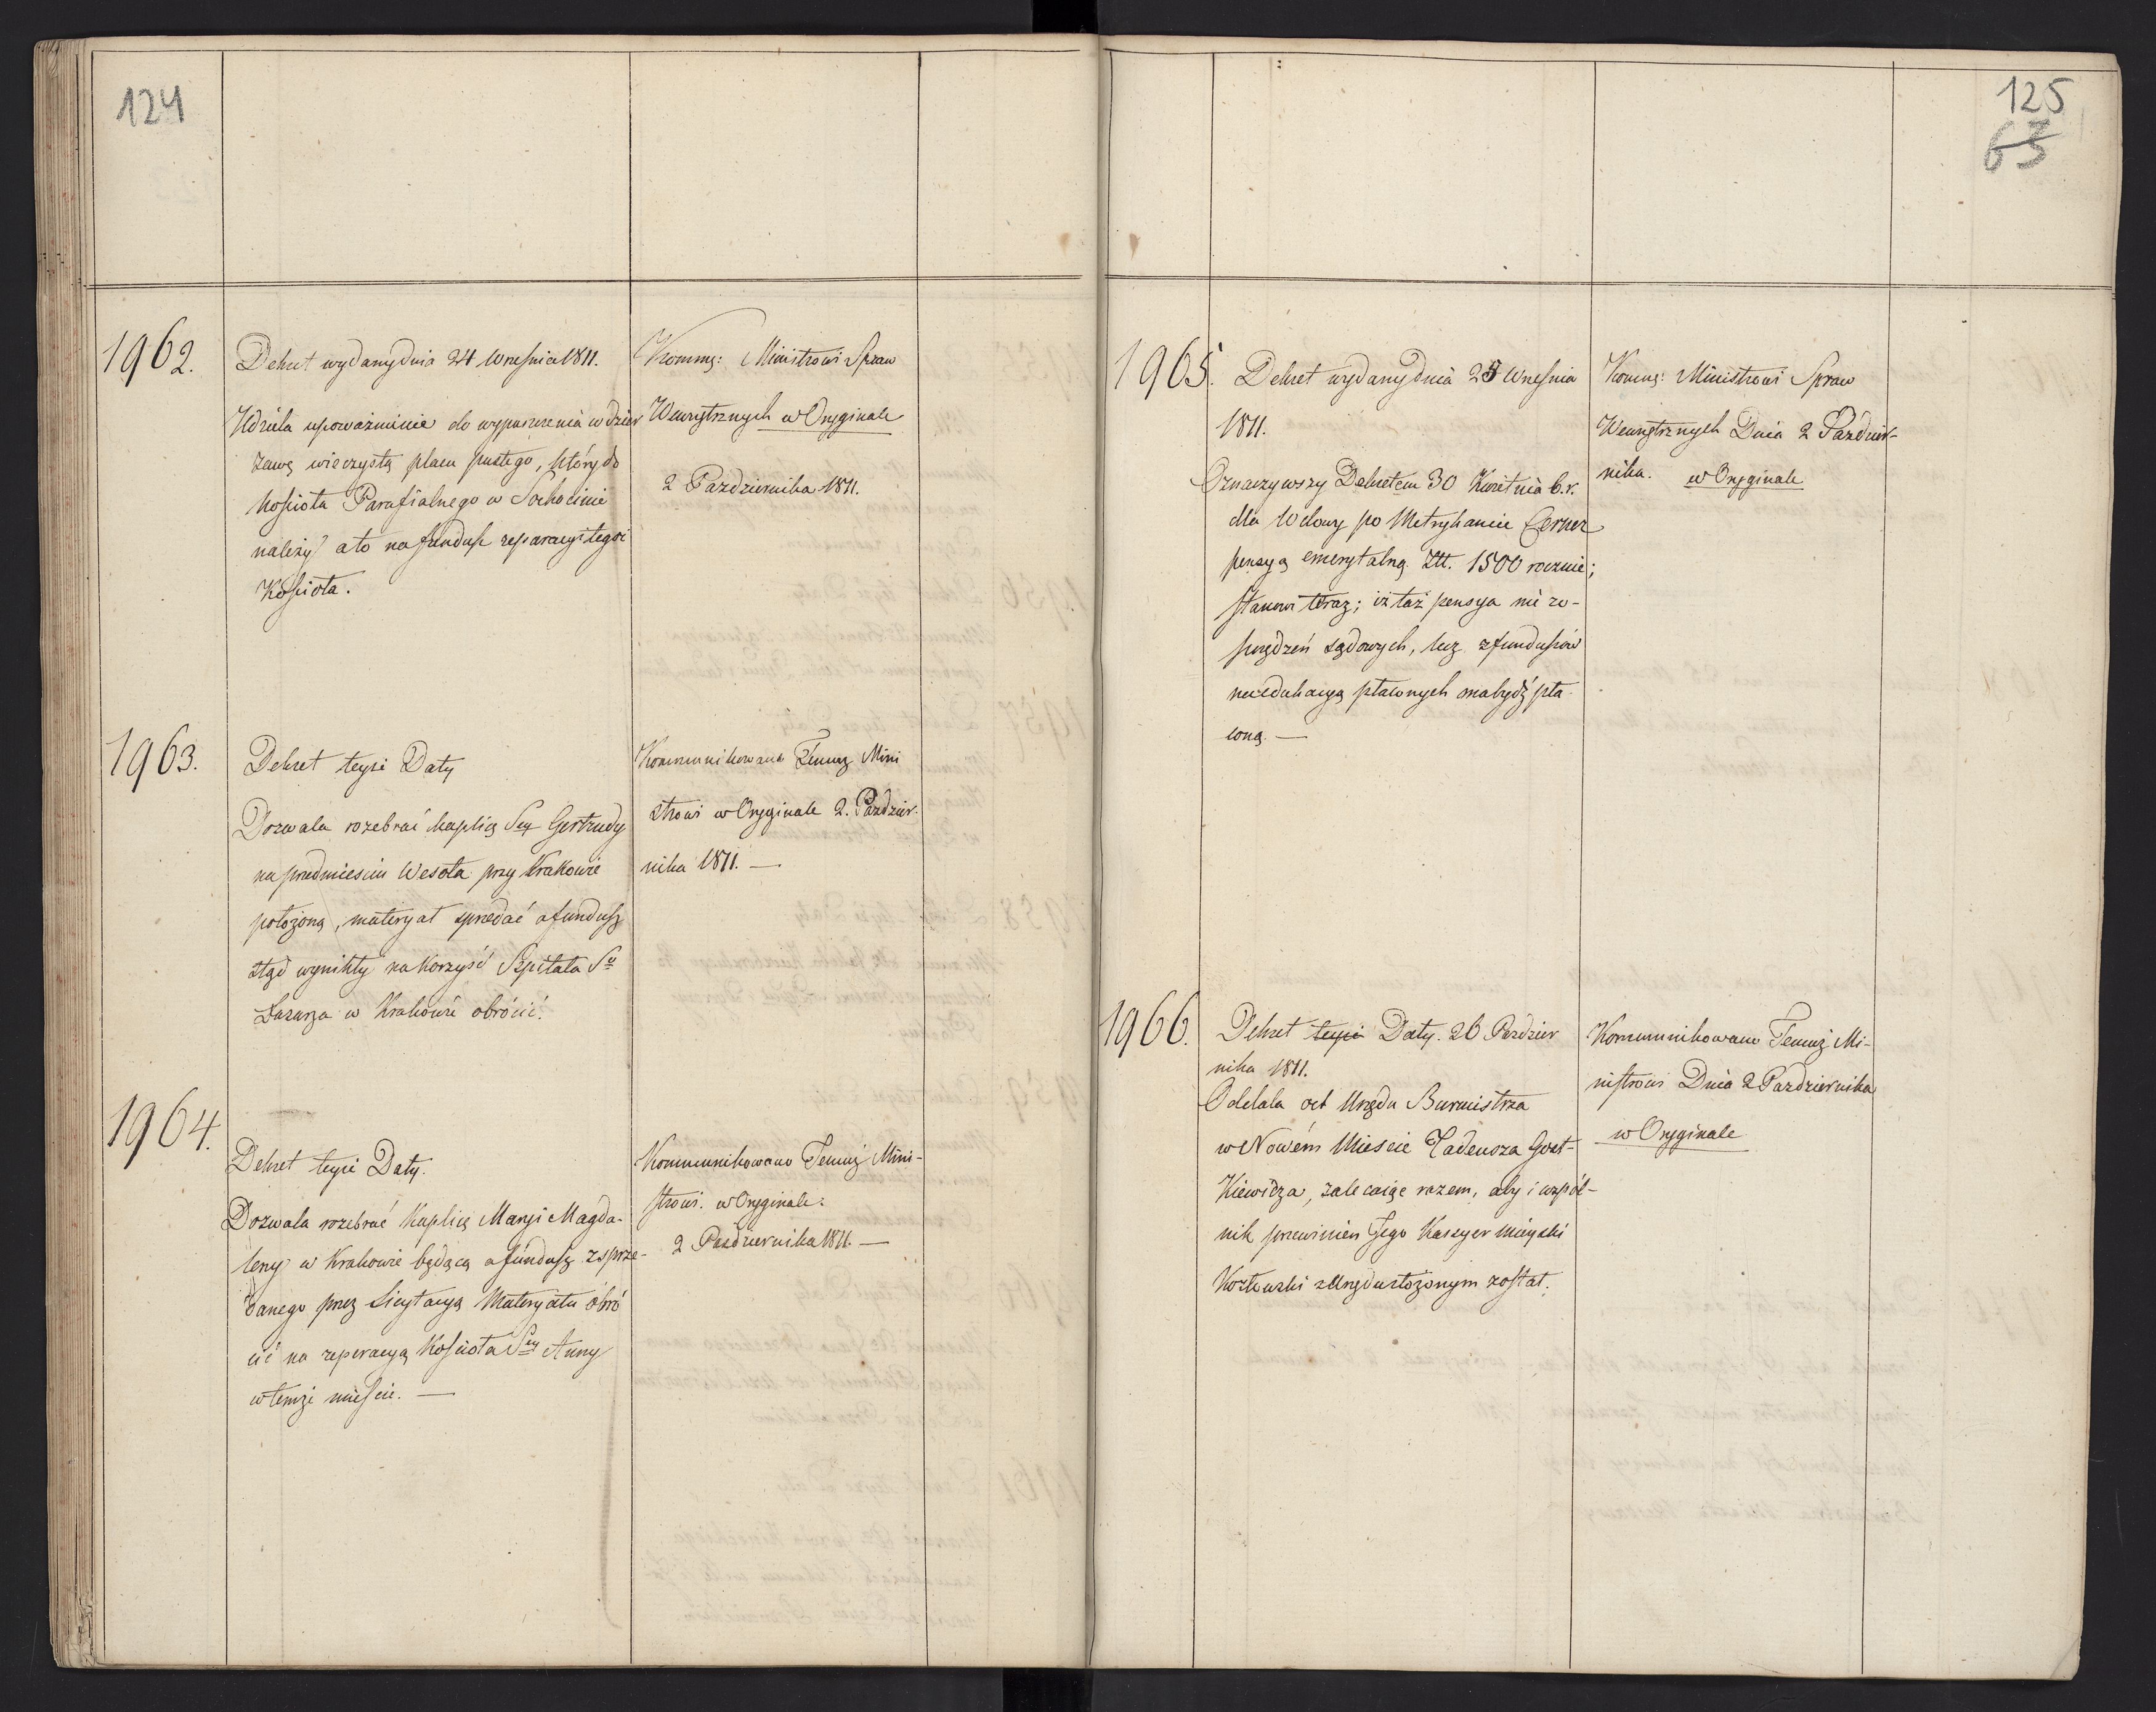 124
1962.
Dekret wydany dnia 24 Wrześnica 1811.
Udziela upoważnienie do wypuszczenia w dzier
żawę wieczystą placu pustego, który do
Kościoła Parafialnego w Sochocinie
należy a to na fundusz reparacyi tegoż
Kościoła.
Kommu: Ministrowi Spraw
Wewnętrznych w Oryginale
2 Pazdziernika 1811.
1963.
Dekret teyże Daty
Dozwala rozebrać kaplicę Sey Gertrudy
na przedmiesciu Wesoła przy Krakowie
położoną, materyał sprzedać a fundusz
ztąd wynikły na korzyść Szpitala Sgo
Łazarza w Krakowie obrócić.
Kommunikowano Temuż Mini
strowi w Oryginale 2. Pazdzier-
nika 1811. —
1964.
Dekret teyże Daty.
Dozwala rozebrać Kaplicę Maryi Magda-
leny w Krakowie będącą a fundusz z sprze-
danego przez Licytacyą Materyału obró
cić na reperacyą Kościoła Sey Anny
w temże mieście. —
Kommunikowano Temuż Mini-
strowi. w Oryginale.
2 Pazdziernika 1811. —
125
63
1965.
Dekret wydany dnia 25 Września
1811.
Oznaczywszy Dekretem 30 Kwietnia b.r.
dla Wdowy po Metrykancie Cerner
pensyą emerytalną Złł. 1500 rocznie;
stanowi teraz; iż taż pensya nie z o-
szczędzeń sądowych, lecz z funduszów
na edukacyą płaconych ma bydź pła-
coną. —
Kommu: Ministrowi Spraw
Wewnętrznych Dnia 2 Pazdzier-
nika. w Oryginale
1966.
Dekret teyże Daty. 26 Pazdzier
nika 1811.
Oddala od Urzędu Burmistrza
w Nowém Mieście Tadeusza Gost-
kiewicza, zalecaiąc razem, aby i wspól-
nik przewinień Jego Kassyer mieyski
Kozłowski z Urzędu złożonym został.
Kommunikowano Temuż Mi-
nistrowi Dnia 2 Pazdziernika
w Oryginale